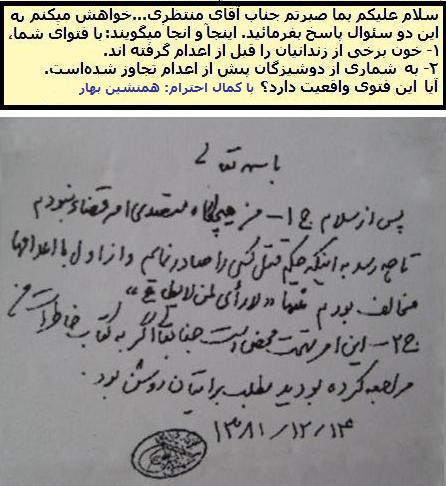 سلام علیکم بما صبرتم جناب آقای منتظری...خواهش میکنم به
این دو سئوال پاسخ بفرمائید. اینجآ و آنجا میگویند: با فتوای شما،
۱- خون برخی از زندانیان را قبل از اعدام گرفته اند.
۲- به شماری از دوشیزگان پیش از اعدام تجاوز شده‌است.
آیا این فتوی واقعیت دارد؟ با کمال احترام: همنشین بهار
باسمه تعالی
پس از سلام ج ۱- من هیچگاه متصدی امر قضاء نبودم
تا چه رسد به اینکه حکم قتل کسی را صادر نمایم و از اول با اعدامها
مخالف بودم منتها "لا رأی لمن لا یطاع"
ج ۲- این امر تهمت محض است جنابعالی اگر به کتاب خاطرات من
مراجعه کرده بودید مطلب برایتان روشن بود.
۱۳۸۱/۱۲/۱۴